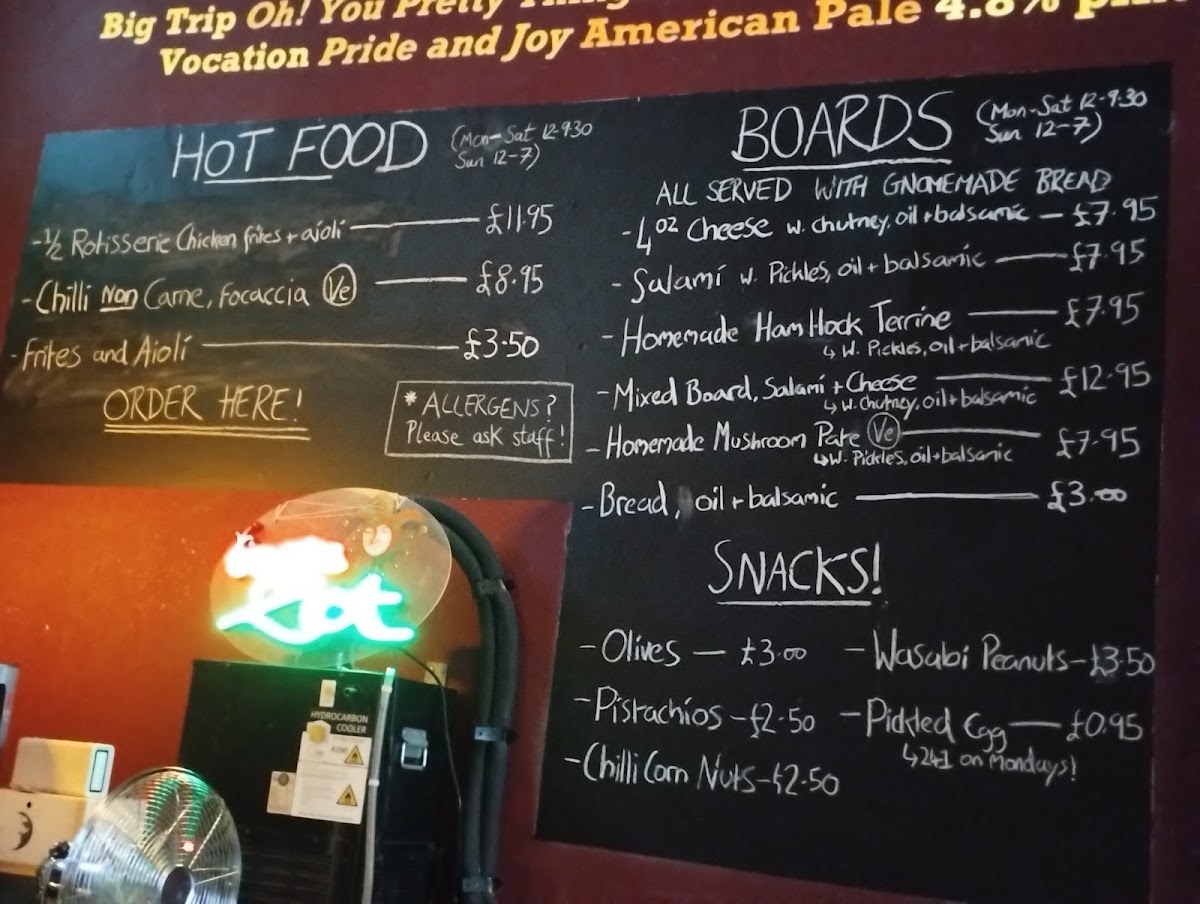 Big Trip Oh! You Pretty Thing
Vocation Pride and Joy American Pale 4.8%
HOT FOOD (Mon-Sat 12-9.30
Sun 12-7)
-1/2 Rotisserie Chicken frites + aioli £11.95
-Chilli Non Carne, Focaccia Ve £8.95
-Frites and Aioli £3.50
ORDER HERE!
* ALLERGENS?
Please ask staff!
BOARDS (Mon-Sat 12-9.30
Sun 12-7)
ALL SERVED WITH GNOMEMADE BREAD
-4oz Cheese w. chutney, oil + balsamic - £7.95
-Salami w. Pickles, oil + balsamic £7.95
-Homemade Ham Hock Terrine £7.95
↳ W. Pickles, oil + balsamic
-Mixed Board, Salami + Cheese £12.95
↳ W. Chutney, oil + balsamic
-Homemade Mushroom Pate Ve £7.95
↳ W. Pickles, oil + balsamic
-Bread, oil + balsamic £3.00
SNACKS!
-Olives - £3.00
-Wasabi Peanuts - £3.50
-Pistachios - £2.50
-Pickled Egg - £0.95
↳ 241 on Mondays!
-Chilli Corn Nuts - £2.50
HYDROCARBON
COOLER